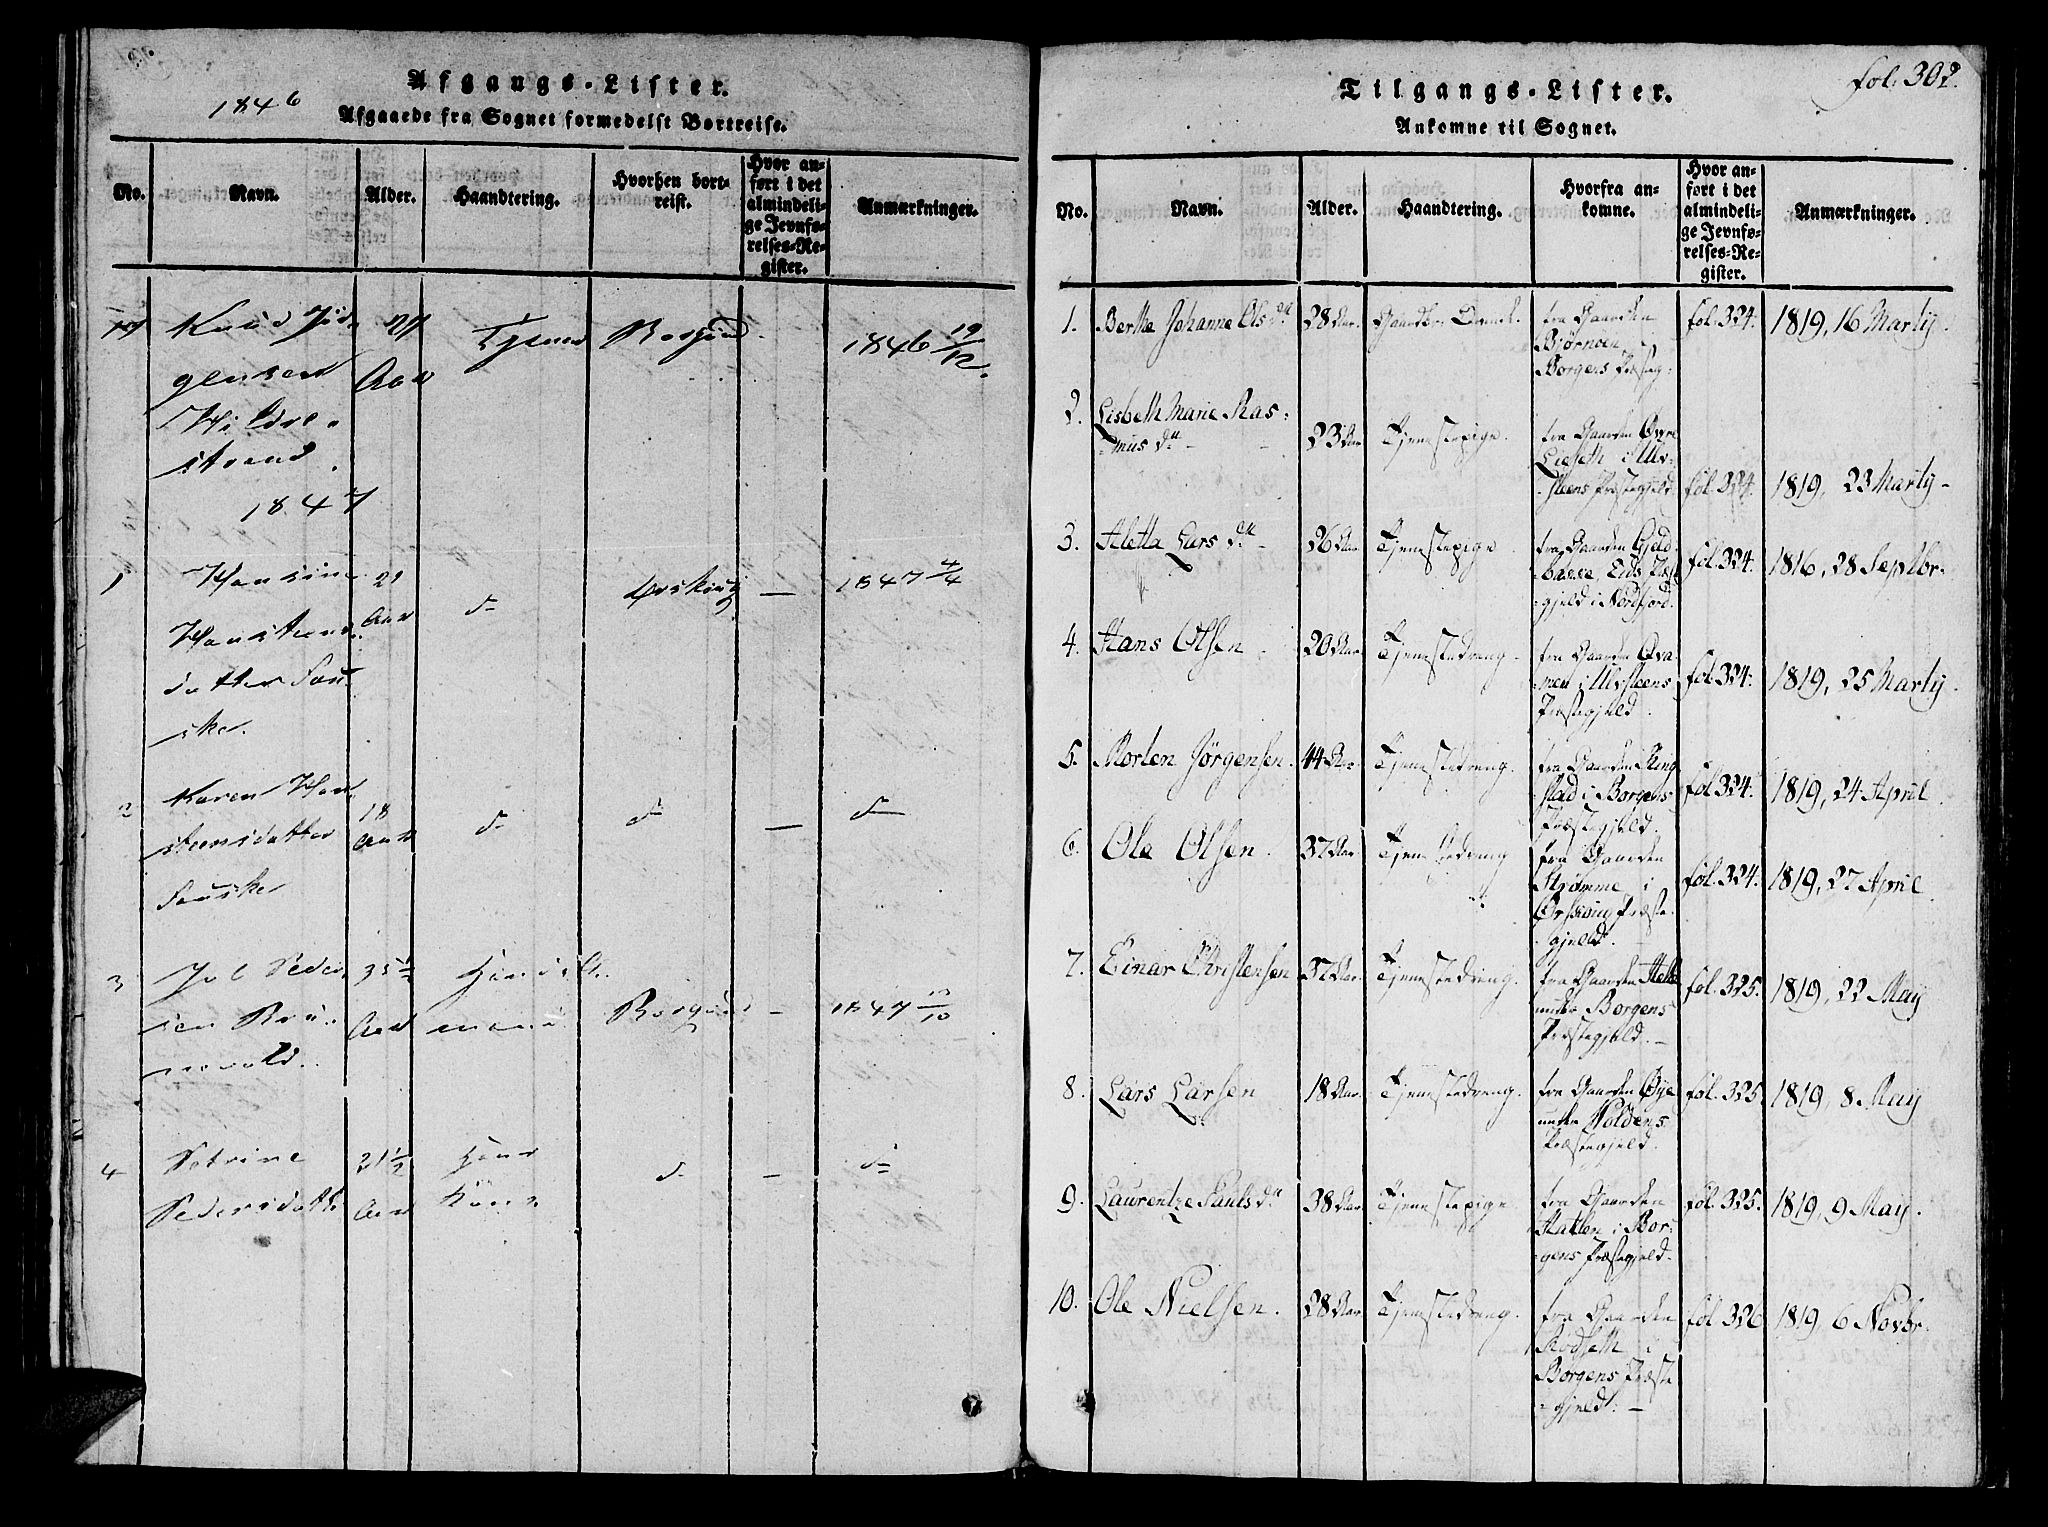 Afgangs-Lister.
1846
Afgaaede fra Sognet formedelst Bortreise.
No.
Navn.
Alder.
Haandtering.
Hvorhen bort-
reist.
Hvor an-
ført i det
almindeli-
ge Jevnfø-
relses-Re-
gister.
Anmærkninger.
Knud Jør-
gensen
Hildre-
strand.
27
Aar
Borgund
1846 19/12.
1847
1
Hansine
Hanstens
datter Sau-
ske.
21
Aar
d=
Ørskoug
—
1847 4/4
2
Karen Han-
steensdatter
Sauske
18
Aar
d=
d=
—
d=
3
Peder-
sen Bru-
35 1/2
Aar
Borgund
-
1847
4
Petrine
Pedersdatter
21 1/2
Aar
Kone
d=
—
d=
fol. 302.
Tilgangs-Lister.
Ankomne til Sognet.
No.
Navn.
Alder.
Haandtering.
Hvorfra an-
komne.
Hvor an-
ført i det
almindeli-
ge Jevnfø-
relses-Re-
gister.
Anmærkninger.
1.
Berthe Johanne Ols dtr
28 Aar.
fra Gaarden
Bjørnøen,
Borgens Præsteg:
fol. 324.
1819, 16 Martij.
2.
Lisbeth Marie Ras=
=mus dtr
23 Aar
Tjenestepige.
fra Gaarden Øvre
Lieseth i Ulv-
-steens Præstegjeld
fol. 324.
1819, 23 Martij
3.
Aletta Lars dtr
26 Aar
Tjenestepige.
fra Gaarden
Eids Præste
=gjeld i Nordfjord.
fol. 324.
1816, 28 Septbr.
4.
Hans Olsen.
20 Aar.
Tjenestedreng.
fra Gaarden
i Ulvsteens
Præstegjeld.
fol. 324.
1819, 25 Martij.
5.
Morten Jörgensen.
44 Aar.
Tjenestedreng.
fra Gaarden Ring
stad i Borgens
Præstegjeld.
fol. 324.
1819, 24 April.
6.
Ole Olsen.
37 Aar
Tjenestedreng
fra Gaarden
Strømme i
Ørskoug Præste-
gjeld.
fol. 324.
1819, 27 April.
7.
Einar Christensen
37 Aar.
Tjenestedreng.
fra Gaarden
under Borgens
Præstegjeld.
fol. 325.
1819, 22 May
8.
Lars Larsen
18 Aar.
Tjenestedreng.
fra Gaarden Øye
under Voldens
Præstegjeld.
fol. 325.
1819, 8 May
9.
Laurentze Pauls dtr
38 Aar.
Tjenestepige
fra Gaarden
Hatlen i Bor-
-gens Præstegjeld.
fol. 325.
1819, 9 May.
10.
Ole Nielsen.
28 Aar.
Tjenestedreng.
fra Gaarden
Rødseth i
Borgens Præste
=gjeld.
fol. 326
1819, 6 Novbr.